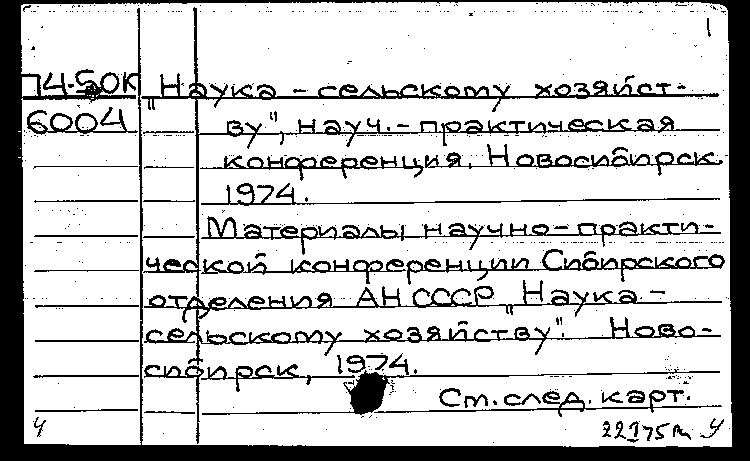 1
74-50К "Наука - сельскому хозяйст-
6004 ву", науч.- практическая
конференция. Новосибирск.
1974.
Материалы научно-практи-
ческой конференции Сибирского
отделения АН СССР „Наука -
сельскому хозяйству". Ново-
сибирск, 1974.
Ст. след. карт.